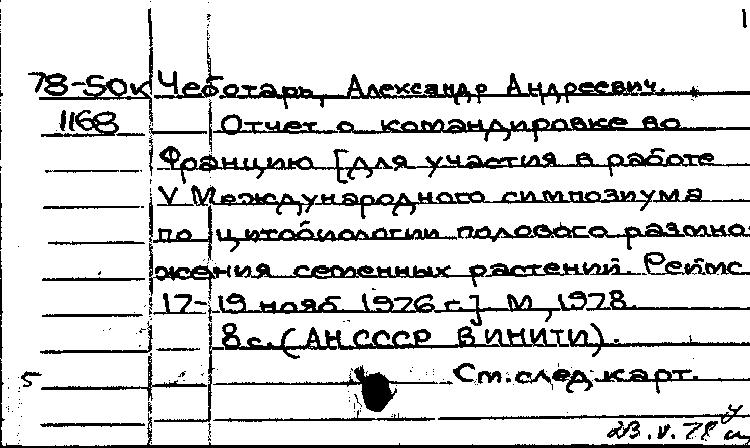 1
78-50к Чеботарь, Александр Андреевич.
1168 Отчет о командировке во
Францию [для участия в работе
V Международного симпозиума
по цитобиологии полового размно-
жения семенных растений. Реймс
17-19 нояб. 1976 г.] М., 1978.
8 с. (АН СССР ВИНИТИ).
5 См. след. карт.
23.V.78